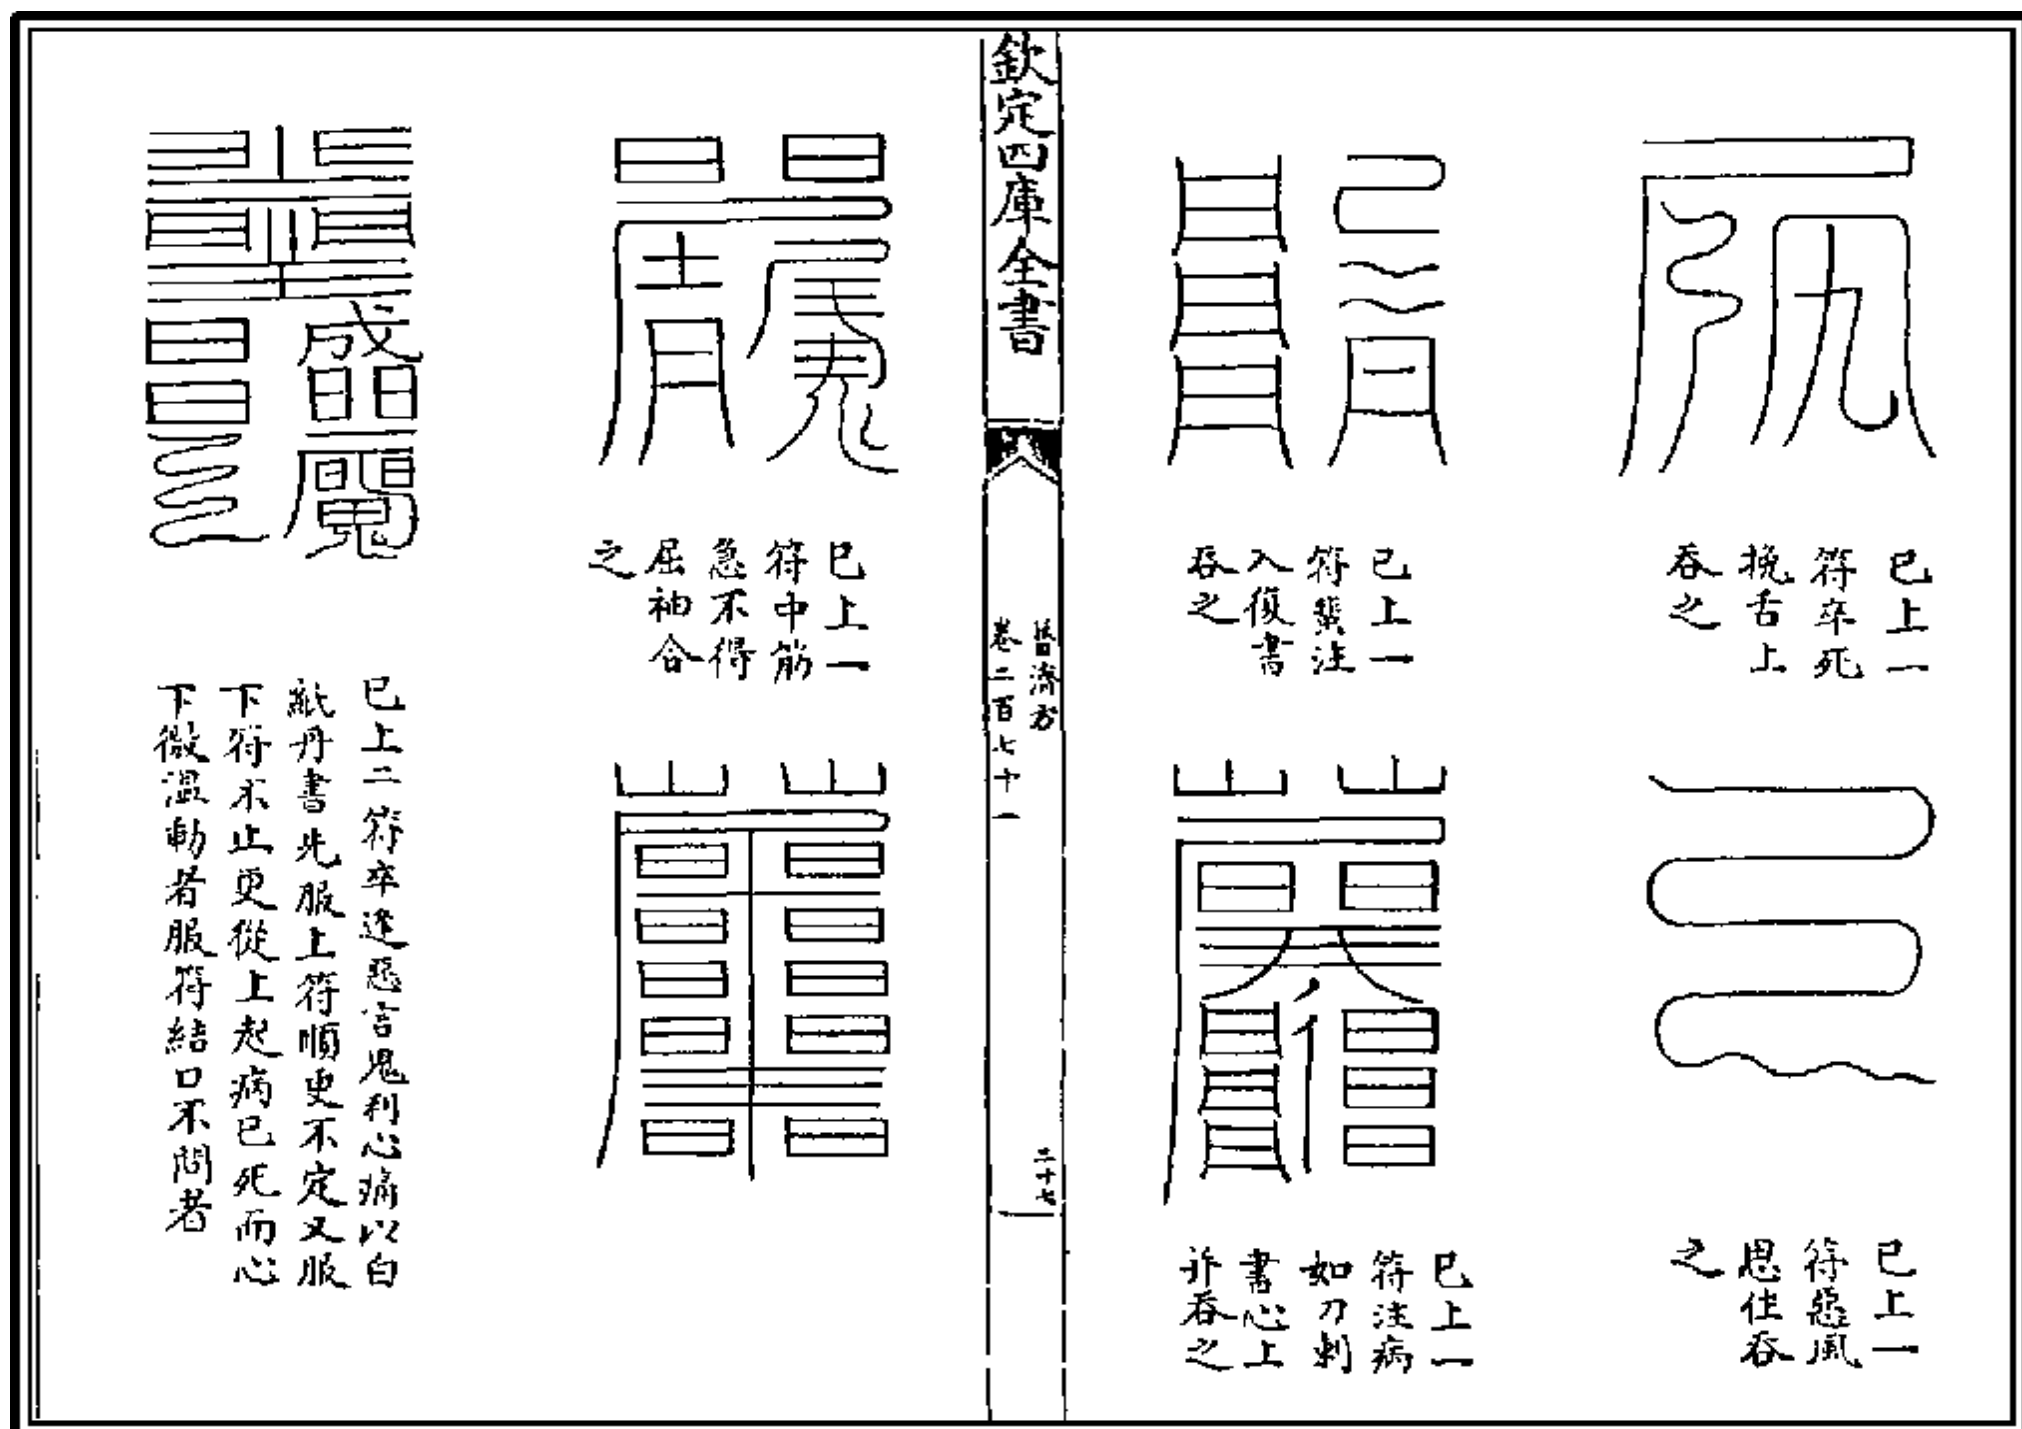 已上一
符卒死
挽舌上
吞之
已上一
符惡風
思住吞
之
已上一
符蜚注
入復書
吞之
已上一
符注病
如刀刺
書心上
并吞之
欽定四庫全書
普濟方
卷二百七十一
三十七
已上一
符中筋
急不得
屈袖合
之
已上二符卒逢惡言鬼利心痛以白
紙丹書先服上符順更不定又服
下符不止更從上起病已死而心
下微溫動者服符結口不問者